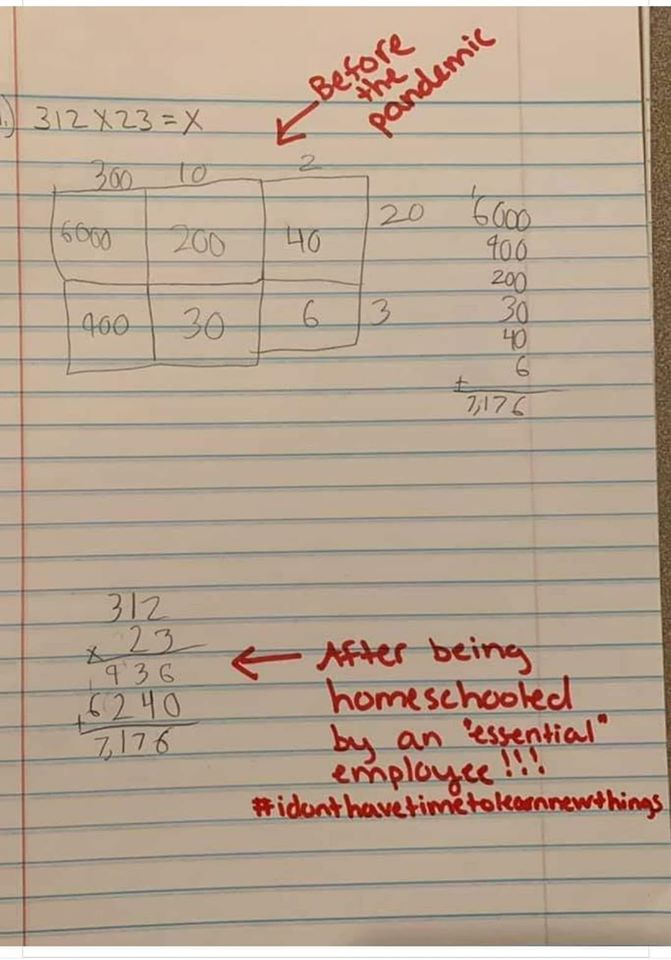 1.) 312 X 23 = X
Before
the
pandemic
300 10 2
6000 200 40 20
900 30 6 3
1
6000
900
200
30
40
6
+
7,176
312
x 23
1
936
+6240
7,176
After being
homeschooled
by an "essential"
employee!!!
#idonthavetimetolearnnewthings